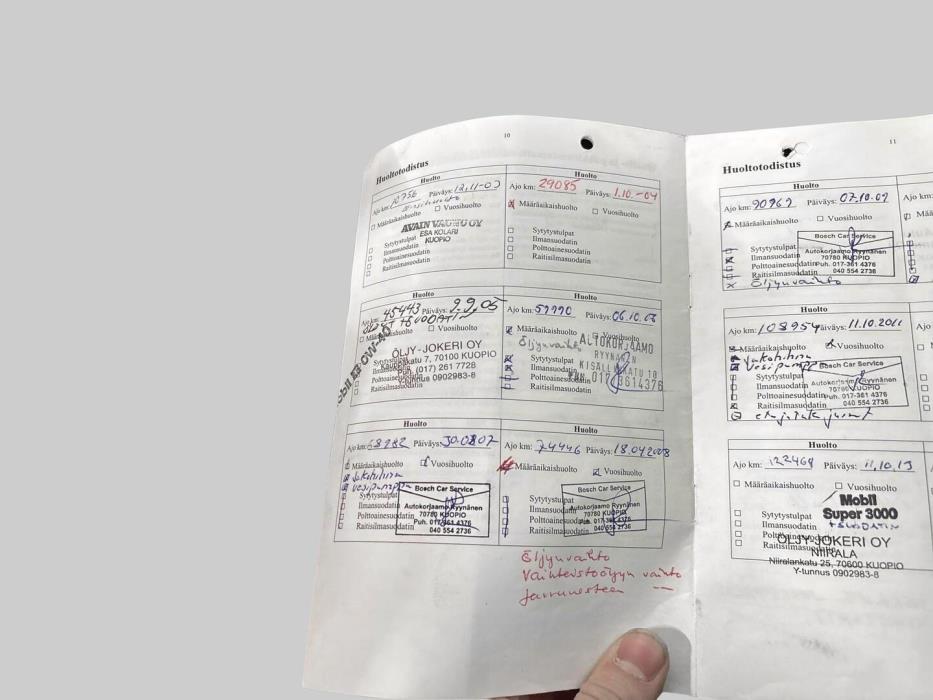 10
Huoltotodistus
Huolto
Ajo km: Päiväys: 12.11-03
☐ Määräaikaishuolto ☐ Vuosihuolto
AVAIN VAUNU OY
ESA KOLARI
KUOPIO
Sytytystulpat
Ilmansuodatin
Polttoainesuodatin
Raitisilmasuodatin
Huolto
Ajo km: 29085 Päiväys: 1.10.-04
Määräaikaishuolto ☐ Vuosihuolto
Sytytystulpat
Ilmansuodatin
Polttoainesuodatin
Raitisilmasuodatin
Huolto
Ajo km: 45443 Päiväys: 9.9.05
Määräaikaishuolto ☐ Vuosihuolto
ÖLJY-JOKERI OY
7, 70100 KUOPIO
Puh. (017) 261 7728
Y-tunnus 0902983-8
Sytytystulpat
Ilmansuodatin
Polttoainesuodatin
Raitisilmasuodatin
Huolto
Ajo km: Päiväys: 06.10.06
Määräaikaishuolto Vuosihuolto
Öljynvaihto
AUTOKORJAAMO
RYYNÄNEN
KISÄLLINKATU 10
017 3614376
Sytytystulpat
Ilmansuodatin
Polttoainesuodatin
Raitisilmasuodatin
Huolto
Ajo km: 68982 Päiväys: 30.0807
Määräaikaishuolto Vuosihuolto
Jakohihna
Vesipumppu
Sytytystulpat
Ilmansuodatin
Polttoainesuodatin
Raitisilmasuodatin
Bosch Car Service
Autokorjaamo Ryynänen
70780 KUOPIO
Puh. 017-361 4376
040 554 2736
Huolto
Ajo km: 74446 Päiväys: 18.04.2008
Määräaikaishuolto Vuosihuolto
Sytytystulpat
Ilmansuodatin
Polttoainesuodatin
Raitisilmasuodatin
Bosch Car Service
Autokorjaamo Ryynänen
70780 KUOPIO
Puh. 017-361 4376
040 554 2736
Öljynvaihto
Vaihteistoöljyn vaihto
Jarrunesteen —
11
Huoltotodistus
Huolto
Ajo km: 90969 Päiväys: 07.10.09
Määräaikaishuolto ☐ Vuosihuolto
Bosch Car Service
Autokorjaamo Ryynänen
70780 KUOPIO
Puh. 017-361 4376
040 554 2736
Sytytystulpat
Ilmansuodatin
Polttoainesuodatin
Raitisilmasuodatin
Öljynvaihto
Huolto
Ajo km: 108954 Päiväys: 11.10.2011
Määräaikaishuolto Vuosihuolto
Jakohihna
Vesipumppu
Sytytystulpat
Ilmansuodatin
Polttoainesuodatin
Raitisilmasuodatin
Bosch Car Service
Autokorjaamo Ryynänen
70780 KUOPIO
Puh. 017-361 4376
040 554 2736
Huolto
Ajo km: 122464 Päiväys: 11.10.13
☐ Määräaikaishuolto ☐ Vuosihuolto
Mobil
Super 3000
Sytytystulpat
Ilmansuodatin
Polttoainesuodatin
Raitisilmasuodatin
ÖLJY-JOKERI OY
NIIRALA
Niiralankatu 25, 70600 KUOPIO
Y-tunnus 0902983-8